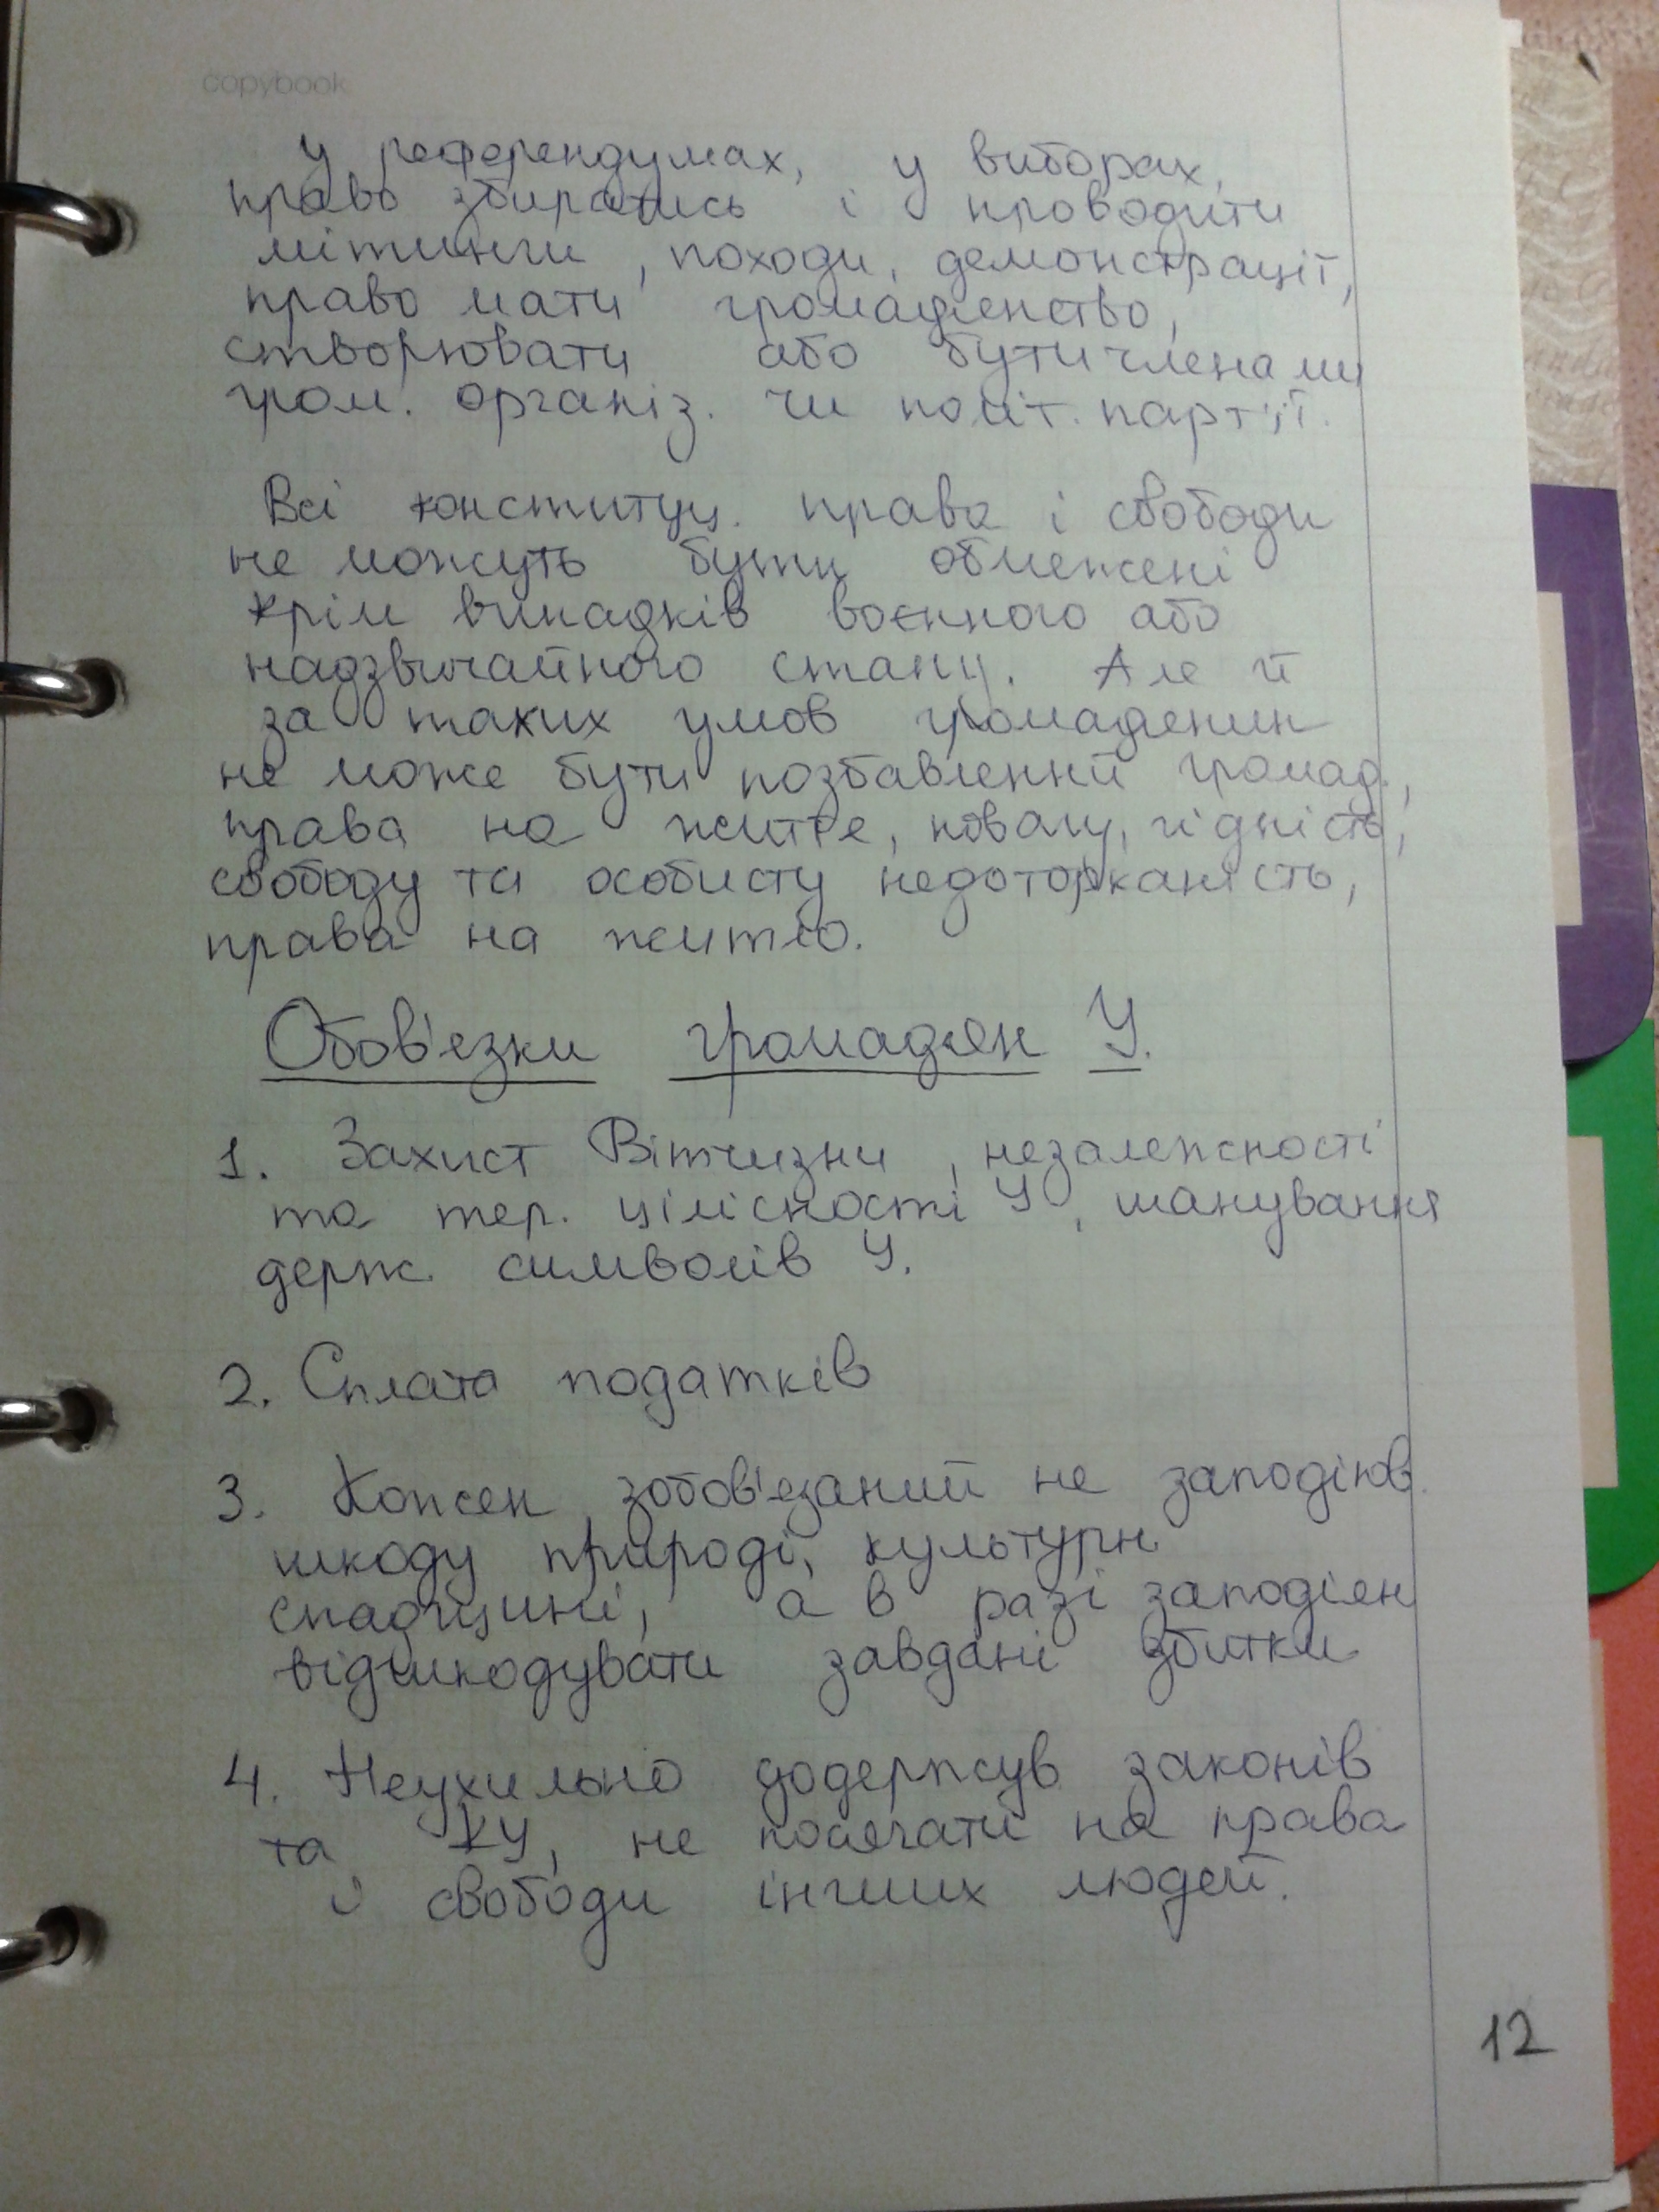 copybook
у референдумах, у виборах,
право збиратись і проводити
мітинги, походи, демонстрації,
право мати громадянство,
створювати або бути членами
гром. організ. чи політ. партії.
Всі конституц. права і свободи
не можуть бути обмежені
крім випадків воєнного або
надзвичайного стану. Але й
за таких умов громадянин
не може бути позбавлений громад.,
права на життя, повагу, гідність,
свободу та особисту недоторканість,
права на житло.
Обов'язки громадян У.
1. Захист Вітчизни, незалежності
та тер. цілісності У, шанування
держ. символів У.
2. Сплата податків
3. Кожен зобов'язаний не заподіюв.
шкоду природі, культурн.
спадщині, а в разі заподіян
відшкодувати завдані збитки
4. Неухильно додержув. законів
та КУ, не посягати на права
і свободи інших людей.
12